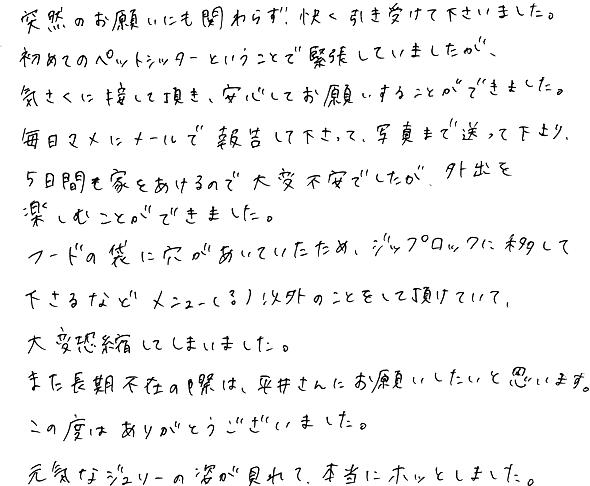 突然のお願いにも関わらず、快く引き受けて下さいました。
初めてのペットシッターということで緊張していましたが、
気さくに接して頂き、安心してお願いすることができました。
毎日マメにメールで報告して下さって、写真まで送って下より、
5日間も家をあけるので大変不安でしたが、外出を
楽しむことができました。
フードの袋に穴があいていたため、ジップロックに移して
下さるなどメニュー(る)以外のことをして頂けていて、
大変恐縮してしまいました。
また長期不在の際は、平井さんにお願いしたいと思います。
この度はありがとうございました。
元気なジュリーの姿が見れて、本当にホッとしました。